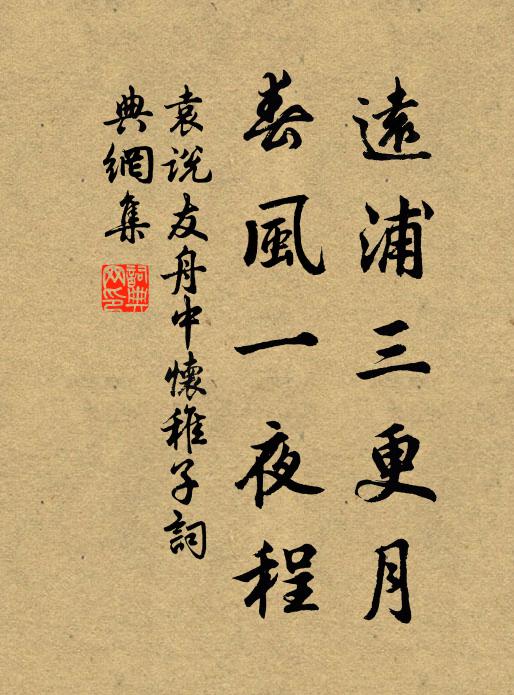 遠浦三更月
春風一夜程
袁說友舟中懷稚子詞
典網集
詞典網印